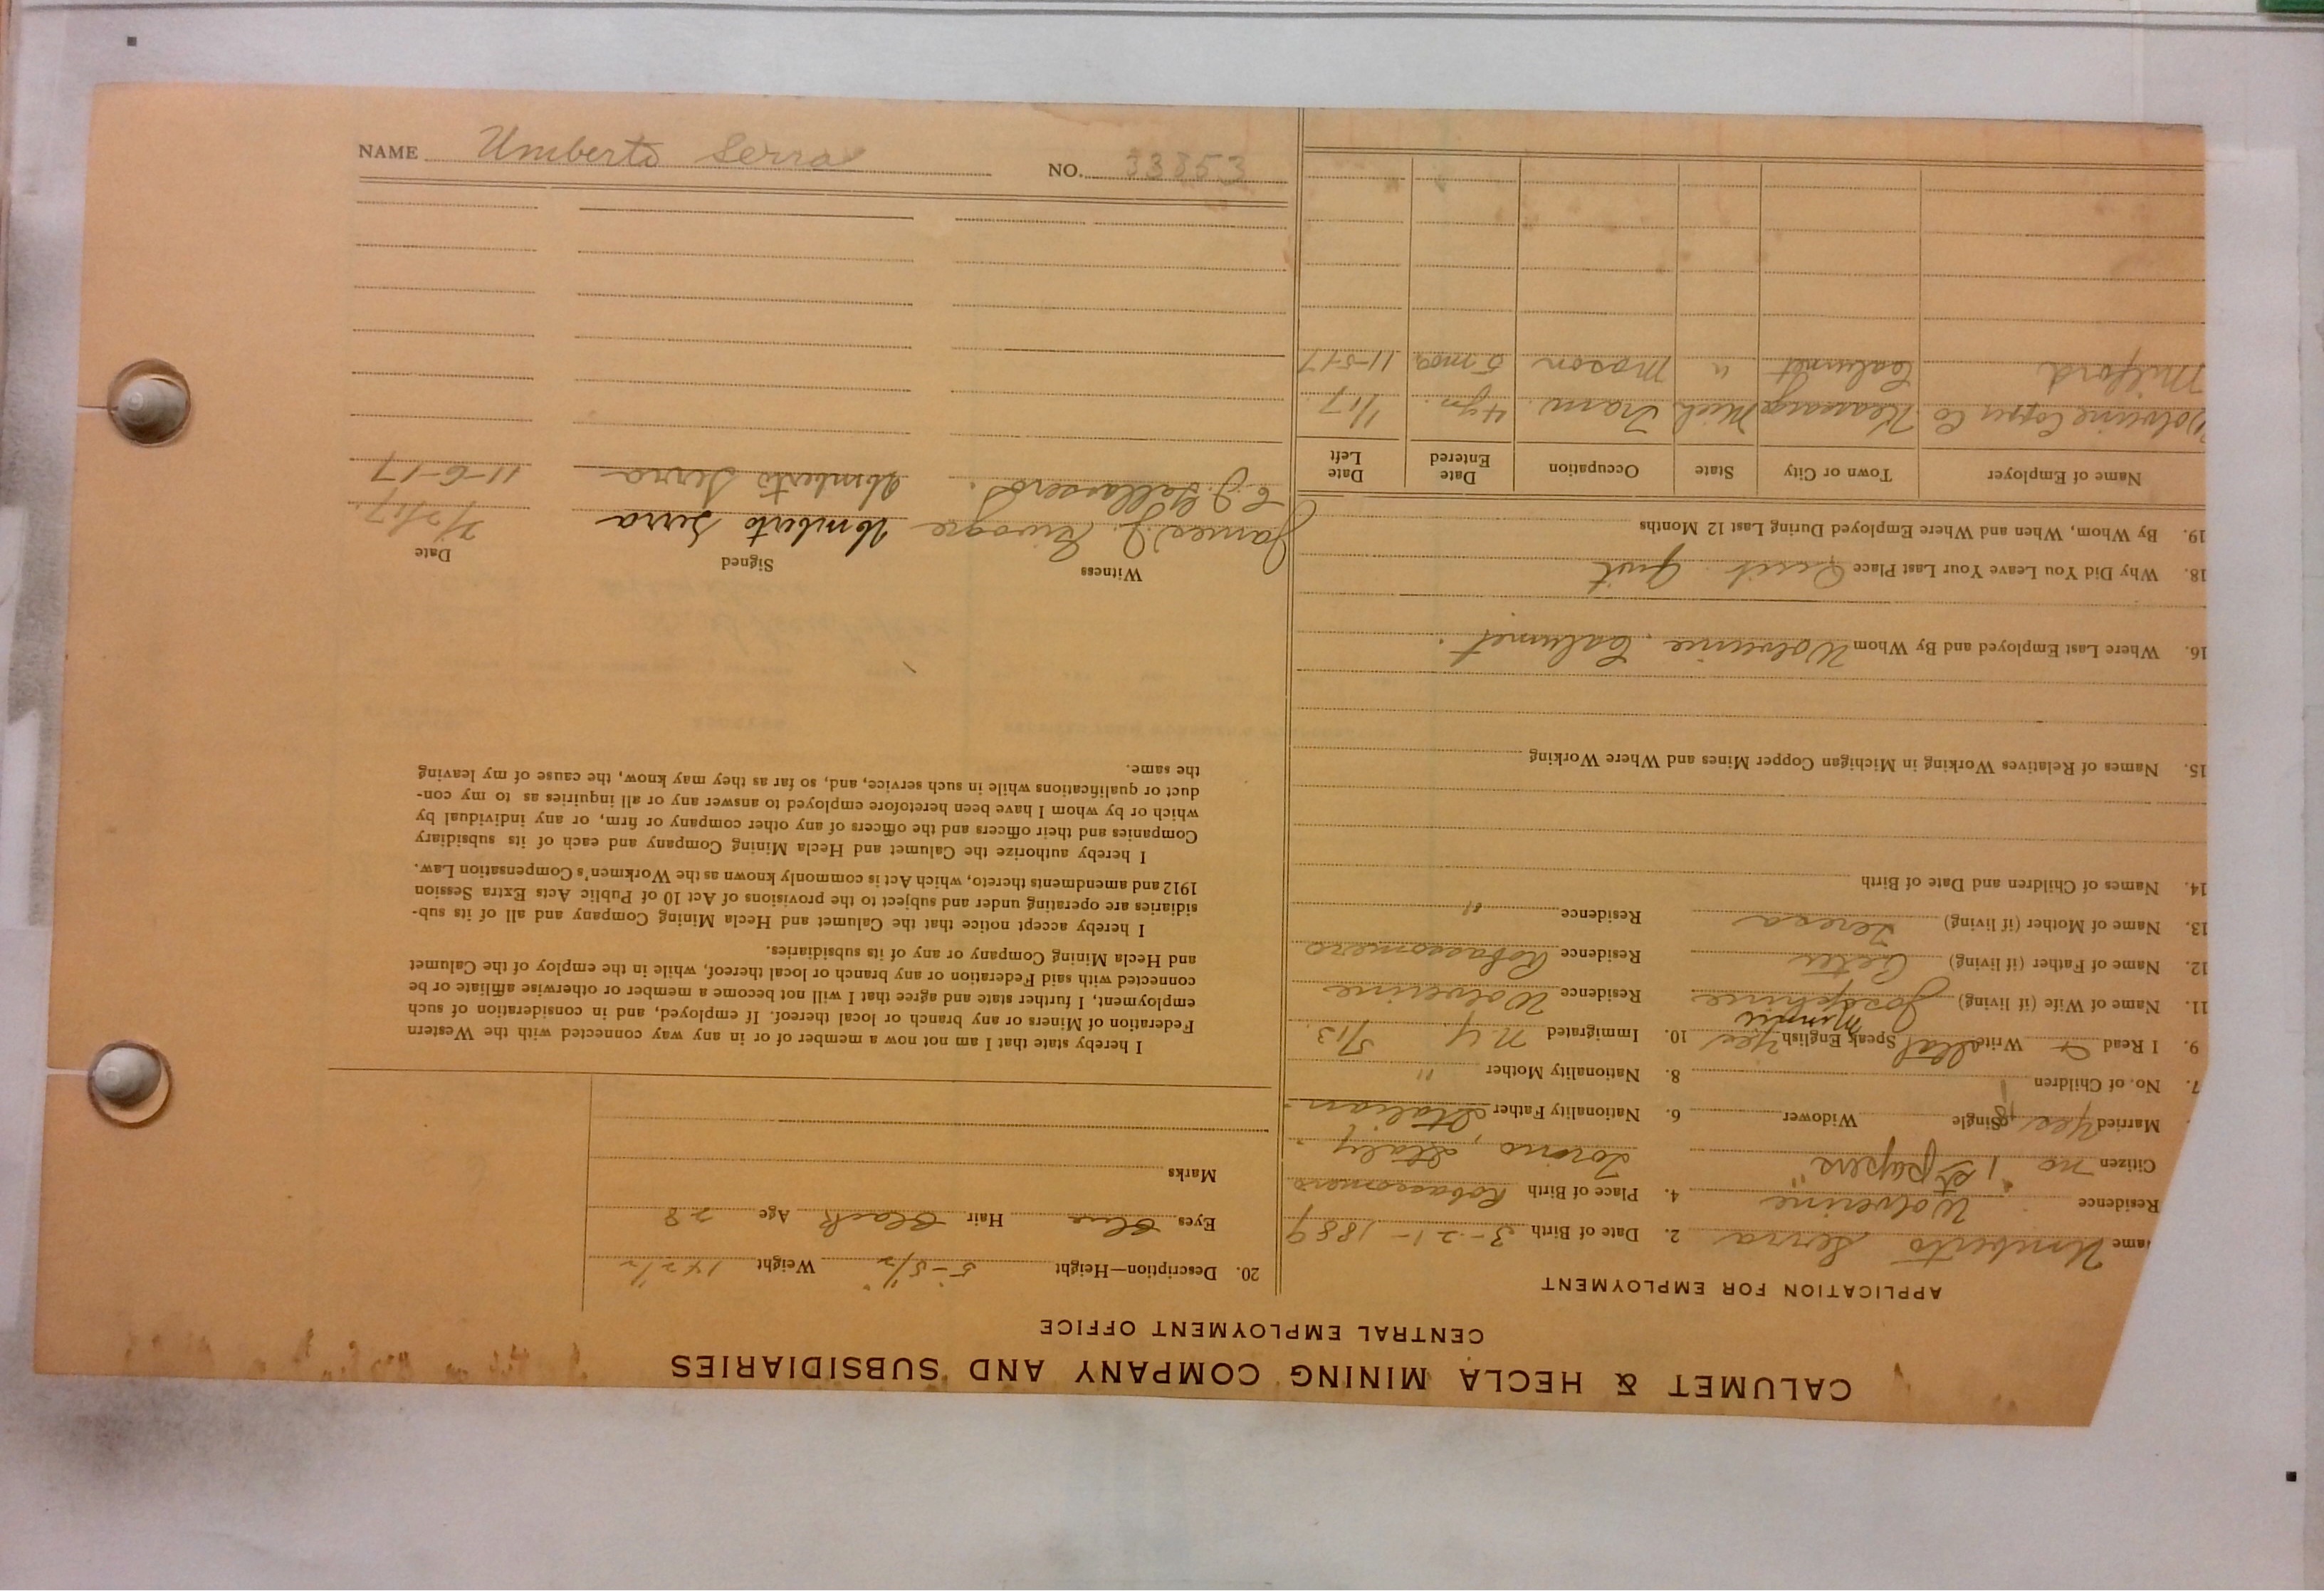 CALUMET & HECLA MINING COMPANY AND SUBSIDIARIES
CENTRAL EMPLOYMENT OFFICE
APPLICATION FOR EMPLOYMENT
ame Umberto Serra
Residence Wolverine
Citizen no "1st papers"
Married Yes Single Widower
7. No. of Children
9. I Read & Write Ital Speak English Yes
11. Name of Wife (if living) Josephine Residence Wolverine
12. Name of Father (if living) Peter Residence Robassomero
13. Name of Mother (if living) Teresa Residence "
14. Names of Children and Date of Birth
15. Names of Relatives Working in Michigan Copper Mines and Where Working
16. Where Last Employed and By Whom Wolverine. Calumet.
18. Why Did You Leave Your Last Place Quit Quit
19. By Whom, When and Where Employed During Last 12 Months
Name of Employer Town or City State Occupation Date Entered Date Left
Wolverine Copper Co Kearsarge Mich Tram. 4 yrs. 1/17
Milford Calumet " Mason 5 mos. 11-5-17
2. Date of Birth 3-21-1889
4. Place of Birth Robassomero
Torino, Italy
6. Nationality Father Italian
8. Nationality Mother "
10. Immigrated N.Y. 5/13
20. Description—Height 5-5½" Weight 142½
Eyes Blue Hair Black Age 28
Marks
I hereby state that I am not now a member of or in any way connected with the Western
Federation of Miners or any branch or local thereof. If employed, and in consideration of such
employment, I further state and agree that I will not become a member or otherwise affiliate or be
connected with said Federation or any branch or local thereof, while in the employ of the Calumet
and Hecla Mining Company or any of its subsidiaries.
I hereby accept notice that the Calumet and Hecla Mining Company and all of its sub-
sidiaries are operating under and subject to the provisions of Act 10 of Public Acts Extra Session
1912 and amendments thereto, which Act is commonly known as the Workmen's Compensation Law.
I hereby authorize the Calumet and Hecla Mining Company and each of its subsidiary
Companies and their officers and the officers of any other company or firm, or any individual by
which or by whom I have been heretofore employed to answer any or all inquiries as to my con-
duct or qualifications while in such service, and, so far as they may know, the cause of my leaving
the same.
Witness Signed Date
James J. Umberto Serra
Umberto Serra 11-6-17
NAME Umberto Serra NO. 33853